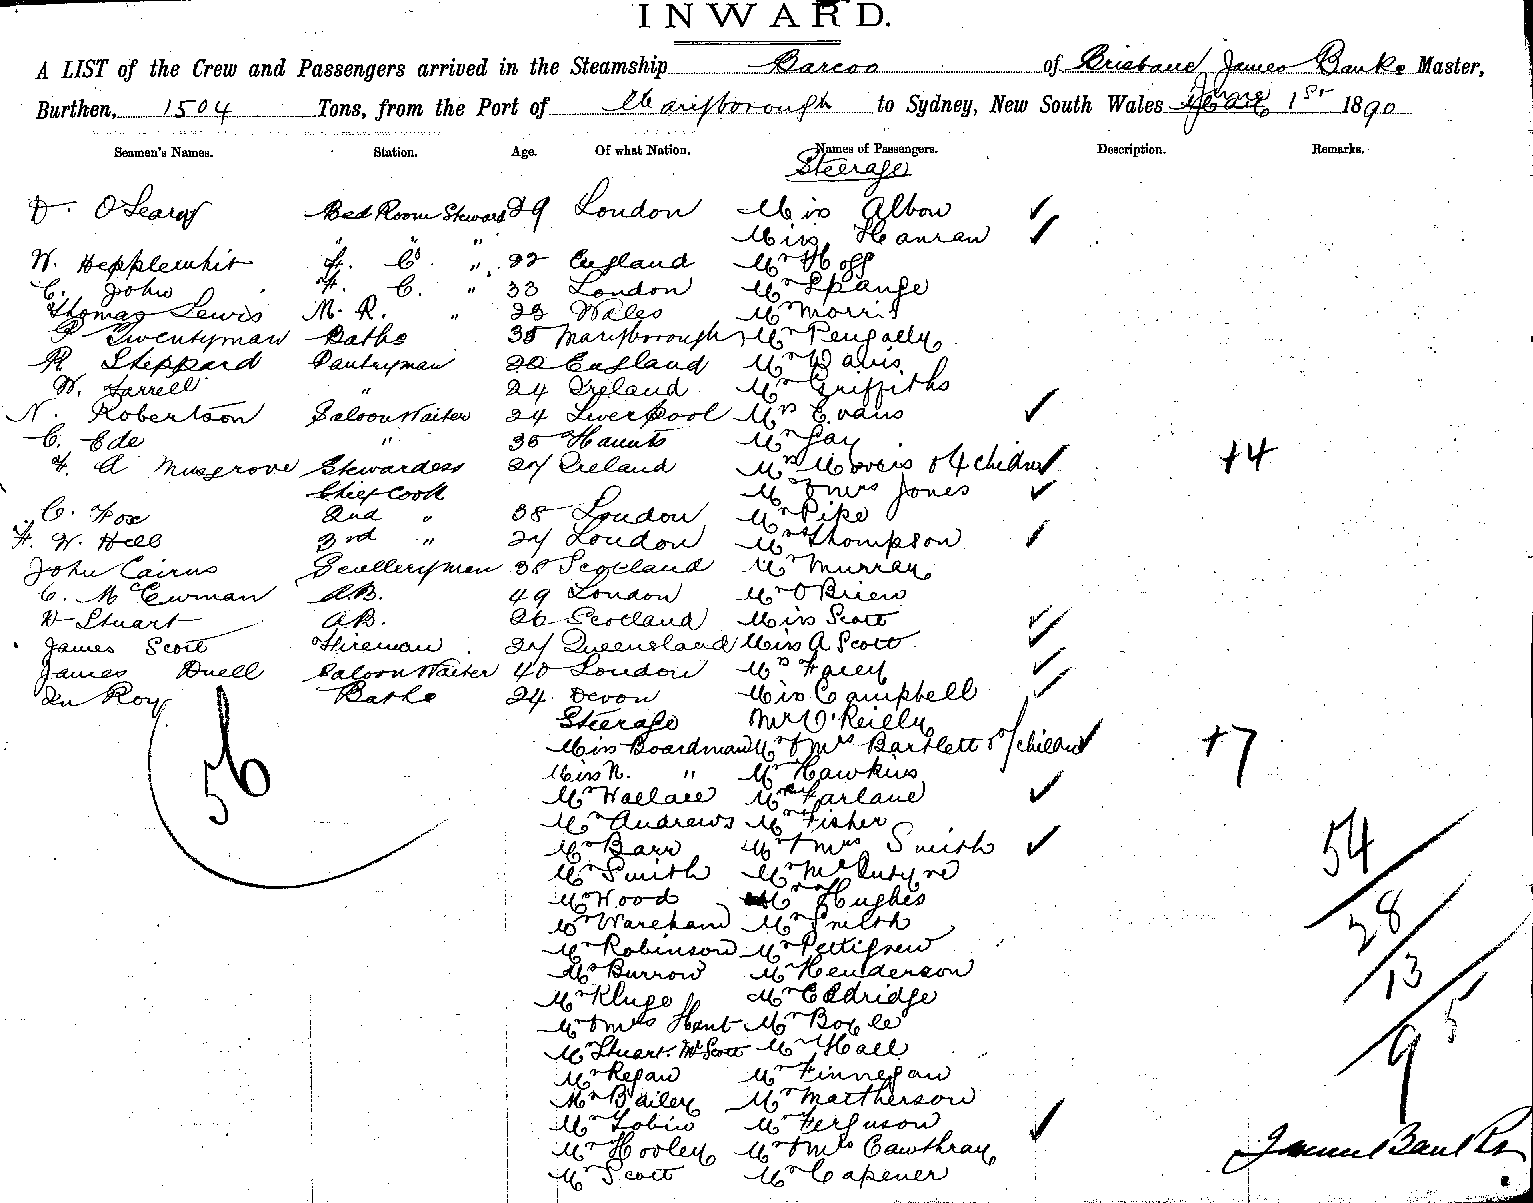 INWARD.
A LIST of the Crew and Passengers arrived in the Steamship Barcoo of Brisbane, James Banks Master,
Burthen, 1504 Tons, from the Port of Maryborough to Sydney, New South Wales June 1st 1890
Seamen's Names. Station. Age. Of what Nation. Names of Passengers. Description. Remarks.
Steerage
D. O'Leary Bed Room Steward 29 London Miss Albon ✓
" " " Miss Hanran ✓
W. Hepplewhit F. C. " 22 England Mr Hoff
C. John F. C. " 33 London Mr Spange
Thomas Lewis M. R. " 23 Wales Mr Morris
P Twentyman Baths 35 Maryborough Mr Pengally
R Sheppard Pantryman 22 England Mr Davis
W. Farrell " 24 Ireland Mr Griffiths
N. Robertson Saloon Waiter 24 Liverpool Mrs Evans ✓
C. Ede " 35 Haunts Mr Gay
F. A Musgrove Stewardess 27 Ireland Mrs Morris & 4 children ✓ +4
Chief Cook Mr & Mrs Jones ✓
C. Fox 2nd " 38 London Mr Pike
F. W. Hill 3rd " 27 London Mrs Thompson ✓
John Cairns Sculleryman 38 Scotland Mr Murray
C. McEwman AB. 49 London Mr O'Brien
D Stuart A.B. 26 Scotland Miss Scott ✓
James Scott Fireman 27 Queensland Miss A Scott ✓
James Duell Saloon Waiter 40 London Mrs Farey ✓
Roy Baths 24 Devon Miss Campbell ✓
Steerage Mr O'Reilly
Miss Boardman Mr & Mrs Bartlett & 7 children ✓ +7
Miss N. " Mr Hawkins
Mr Wallace Mrs Farlane ✓
Mr Andrews Mr Fisher
Mr Barr Mr & Mrs Smith ✓
Mr Smith Mr McIntyre
Mr Wood Mr Hughes
Mr Wareham Mr Smith
Mr Robinson Mr Pettigrew
Mr Burrow Mr Henderson
Mr Kluge Mr Eldridge
Mr & Mrs Hant Mr Boyle
Mr Stuart. Mr Scott Mr Hall
Mr Regan Mr Finnegan
Mr Bailey Mr Mattherson
Mr Tobin Mr Ferguson
Mr Hooley Mr & Mrs Cawthray ✓
Mr Scott Mr Capener
56
54
28
13
95
James Banks